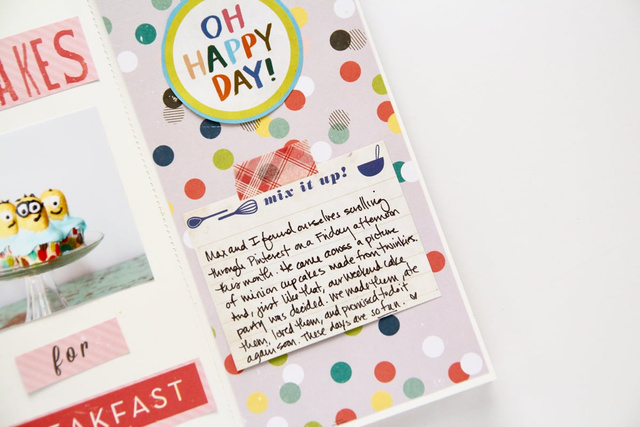 AKES
for
EAKFAST
OH
HAPPY
DAY!
mix it up!
Max and I found ourselves scrolling
through Pinterest on a Friday afternoon
this month. We came across a picture
of minion cupcakes made from twinkies.
And, just like that, our weekend cake
party was decided. We made them, ate
them, loved them, and promised to do it
again soon. These days are so fun.